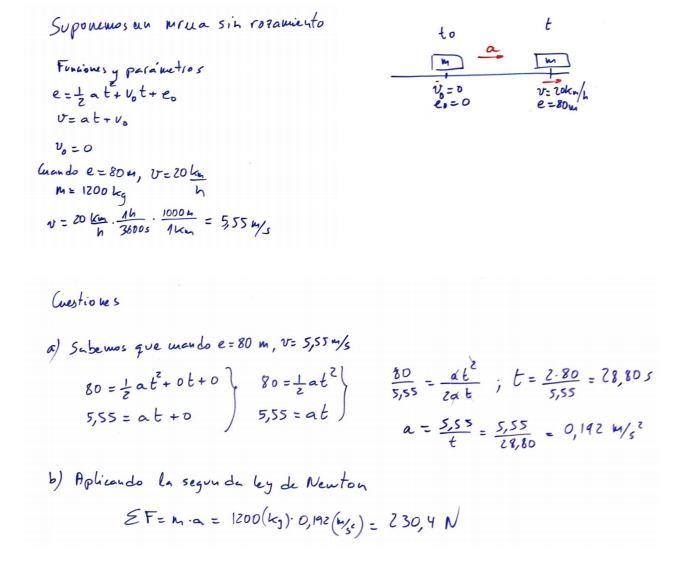 Suponemos un mrua sin rozamiento
t₀
t
a
m
m
v₀=0
e₀=0
v=20km/h
e=80m
Funciones y parámetros
e = 1/2 a t² + v₀t + e₀
v = at + v₀
v₀ = 0
Cuando e = 80 m, v = 20 km/h
m = 1200 kg
v = 20 km/h · 1h/3600s · 1000m/1km = 5,55 m/s
Cuestiones
a) Sabemos que cuando e = 80 m, v = 5,55 m/s
80 = 1/2 at² + 0t + 0 } 80 = 1/2 at² }
5,55 = at + 0 } 5,55 = at }
80/5,55 = at²/2at ; t = 2·80/5,55 = 28,80 s
a = 5,55/t = 5,55/28,80 = 0,192 m/s²
b) Aplicando la segunda ley de Newton
ΣF = m·a = 1200(kg)·0,192(m/s²) = 230,4 N